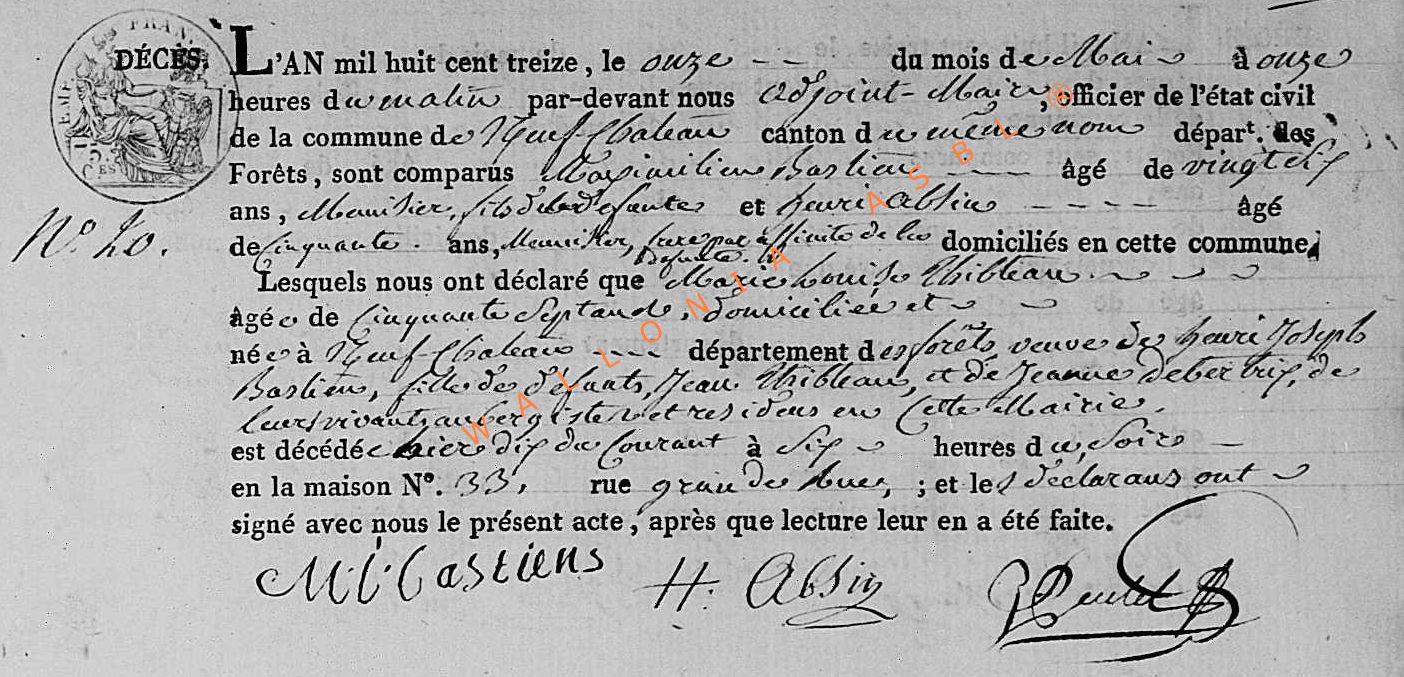 DÉCÈS. L'AN mil huit cent treize, le onze -- du mois de Mai à onze
heures du matin par-devant nous adjoint-Maire, officier de l'état civil
de la commune de Neuf-Chateau canton du même nom départ. des
Forêts, sont comparus Maximilien Bastien ---- âgé de vingt six
ans, Meunisier, fils de la defunte et henri Absin ----- âgé
de Cinquante. ans, Meunisier, frere par affinité de la domiciliés en cette commune,
Defunte.
N.° 20.
Lesquels nous ont déclaré que Marie Louise Thibteau
âgée de Cinquante Sept ands, domiciliée et
née à Neuf-Chateau ---- département des forêts veuve de henri Joseph
Bastien, fille de défunts, Jean Thibteau, et de Jeanne debertrix, de
leurs vivants aubergistes et residens en Cette Mairie.
est décédée hier dix du Courant à Six heures du Soir
en la maison N°. 33, rue grande Rue, ; et les déclarans ont
signé avec nous le présent acte, après que lecture leur en a été faite.
M:L:Bastiens H. Absin
WALLONIA ASBL ©